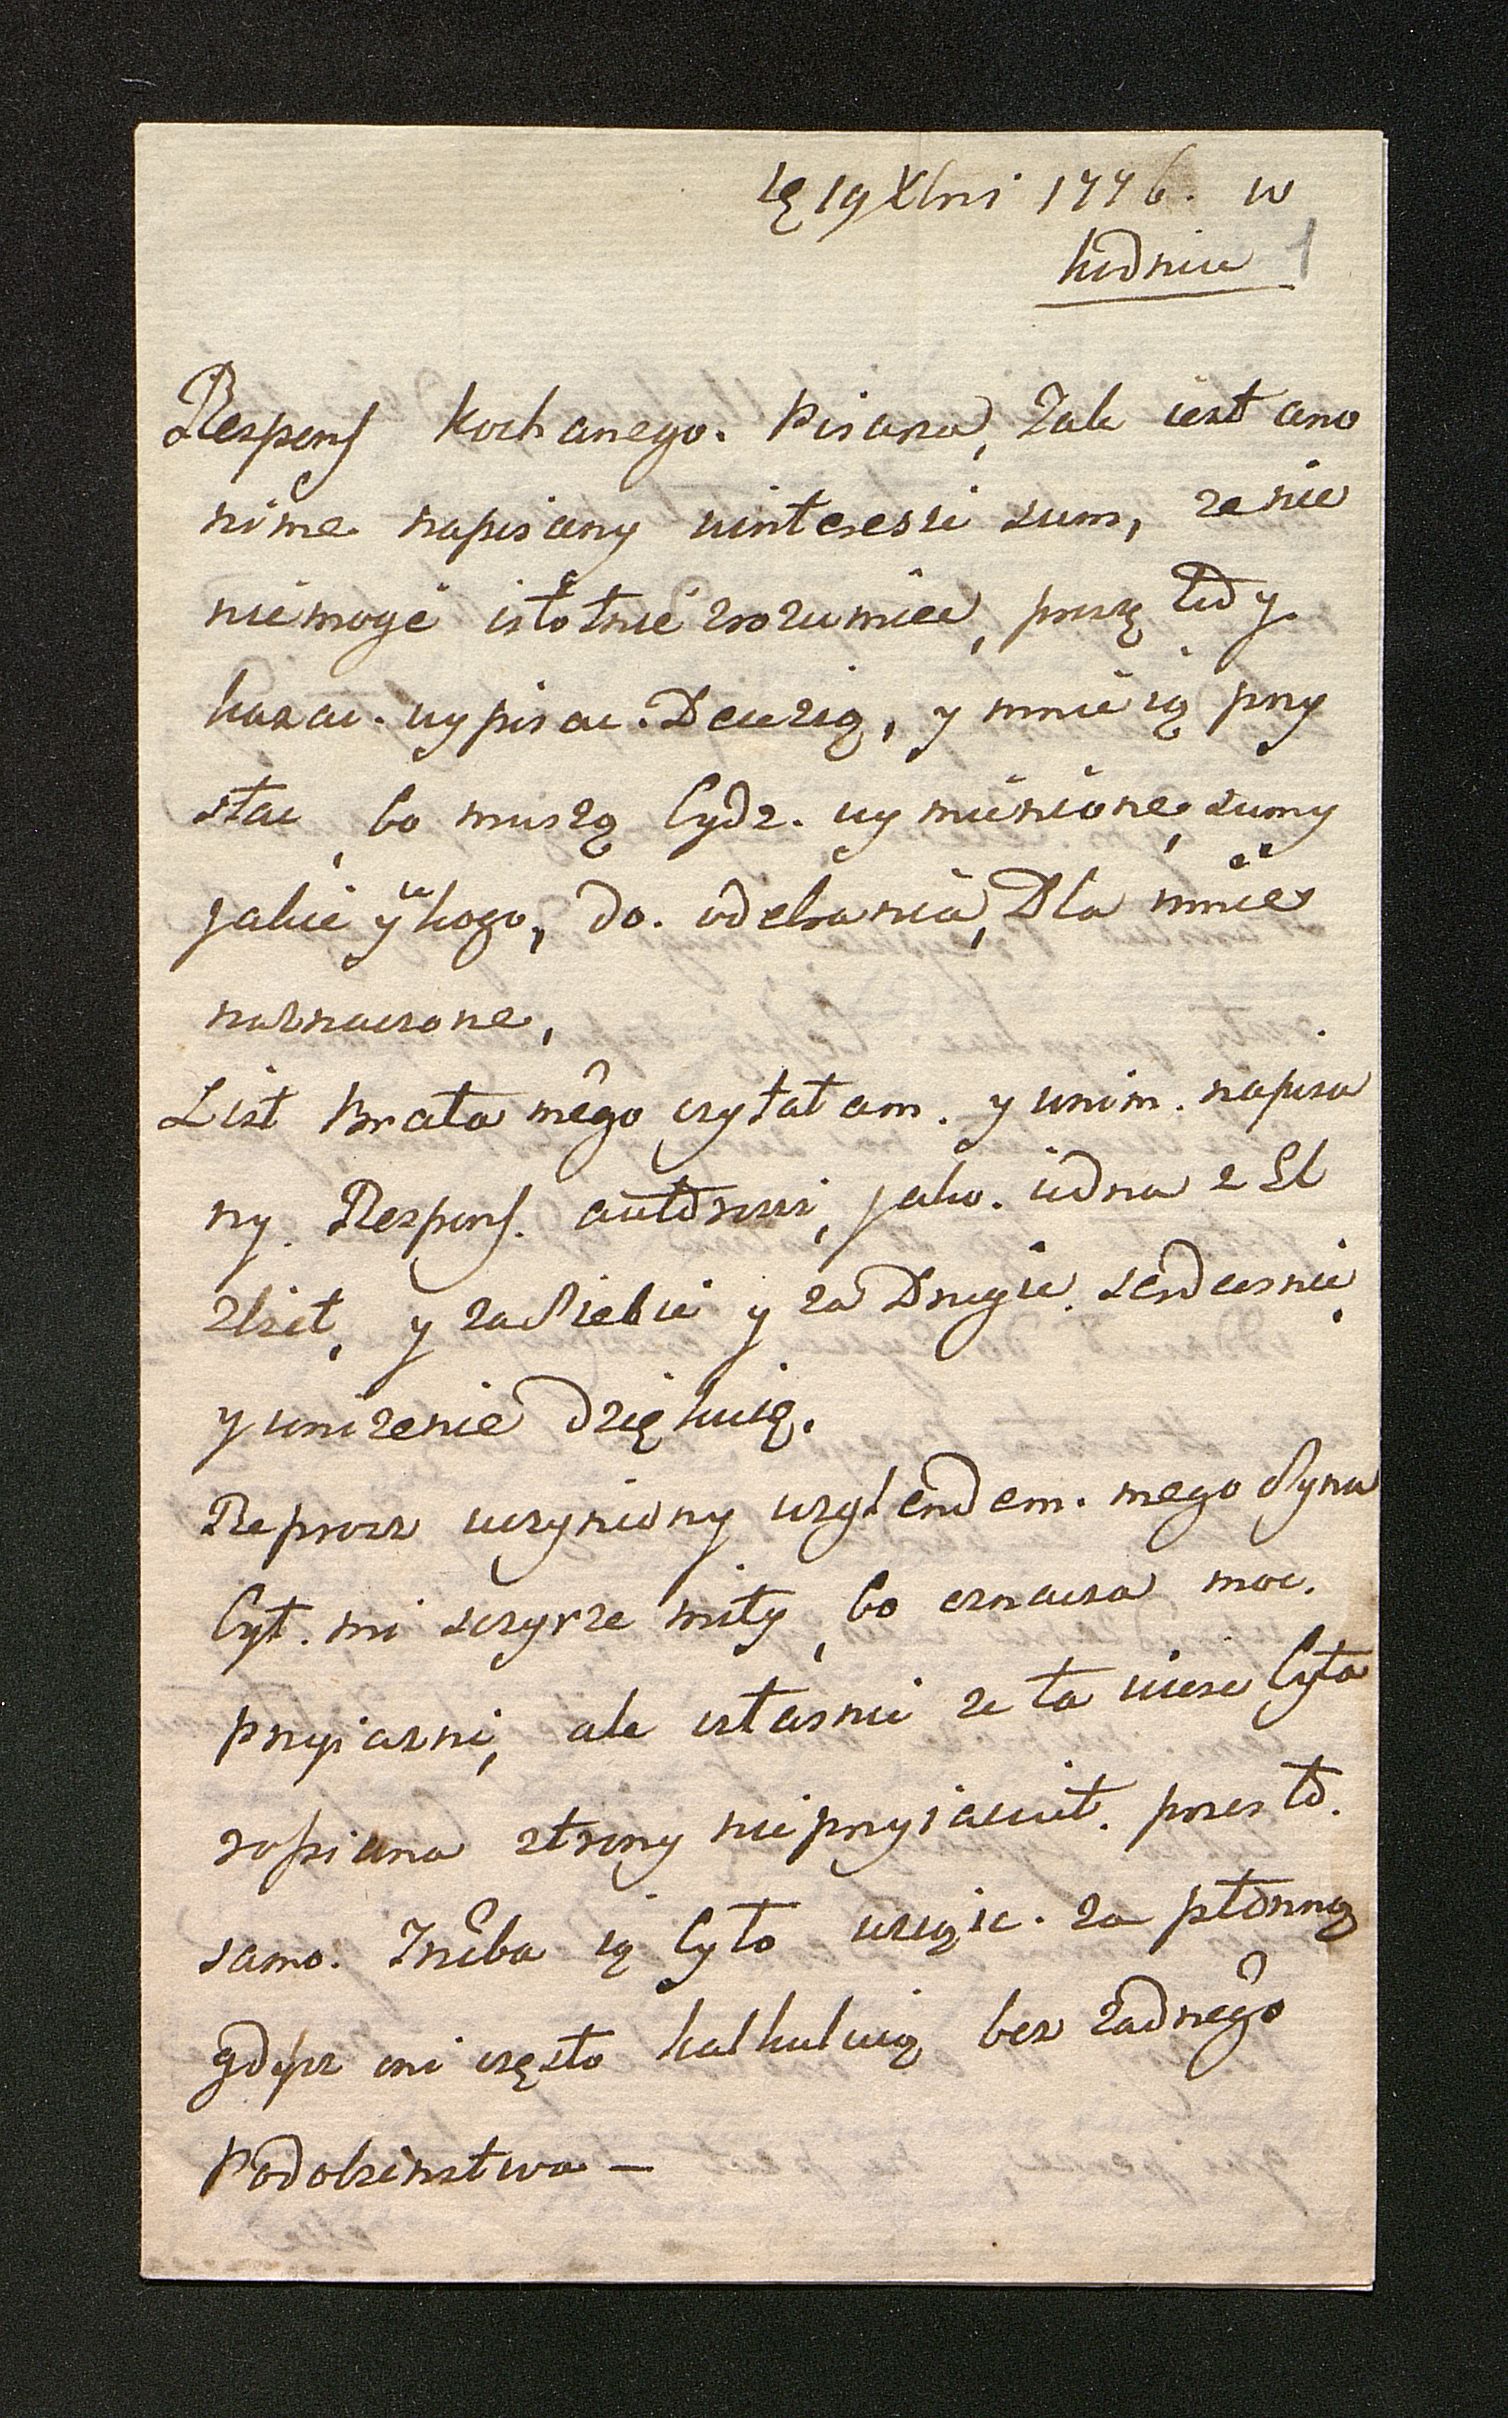 19 Xbri 1776. w
kodniu 1
Respons Kochanego. Pisara, Tak iest ano
nime napisany uinteressi sum, ze nie
niemoge istotnie zrozumiec, proszę tedy
kazac. uypisac. Decizią, y mnie ią przy
słac, bo muszą bydz. uymienione, sumy
jakie y u kogo, do. odebrania, Dla mnie
naznaczone,
List Brata mego czytałam. y wnim. napisa
ny Respons. autorowi, jako. iedna z El
zbiet, y zasiebie y za Drugie. serdecznie,
y unizenie dziękuię.
Reprosz uczyniony wzglendem. mego Syna
byt. mi sczyrze miły, bo oznacza moc.
przyiazni, ale własnie ze ta wiese była
rospiana ztrony nieprzyiacioł. przes to.
samo. Trzeba ią było wziąsc. za płonną
gdysz oni często kalkuluią bez zadnego
Podobienstwa —